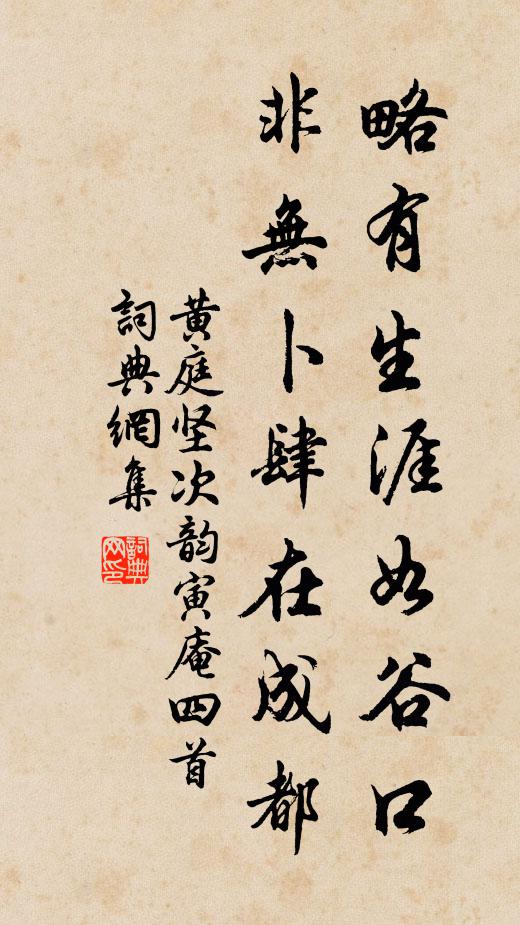 略有生涯如谷口
非無卜肆在成都
黄庭坚次韵寅庵四首
詞典網集
詞典
网印